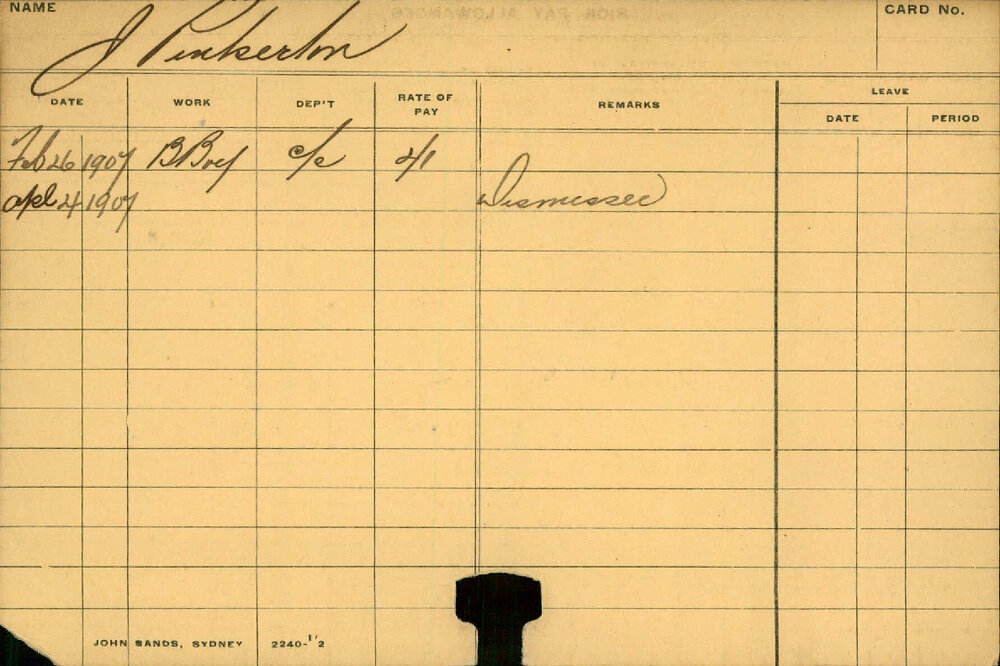 NAME J Pinkerton CARD No.
DATE WORK DEP'T RATE OF PAY REMARKS LEAVE
DATE PERIOD
Feb 26 1907 BBoy c/c 4/1
Apl 4 1907 Dismissed
JOHN SANDS, SYDNEY 2240-1'2